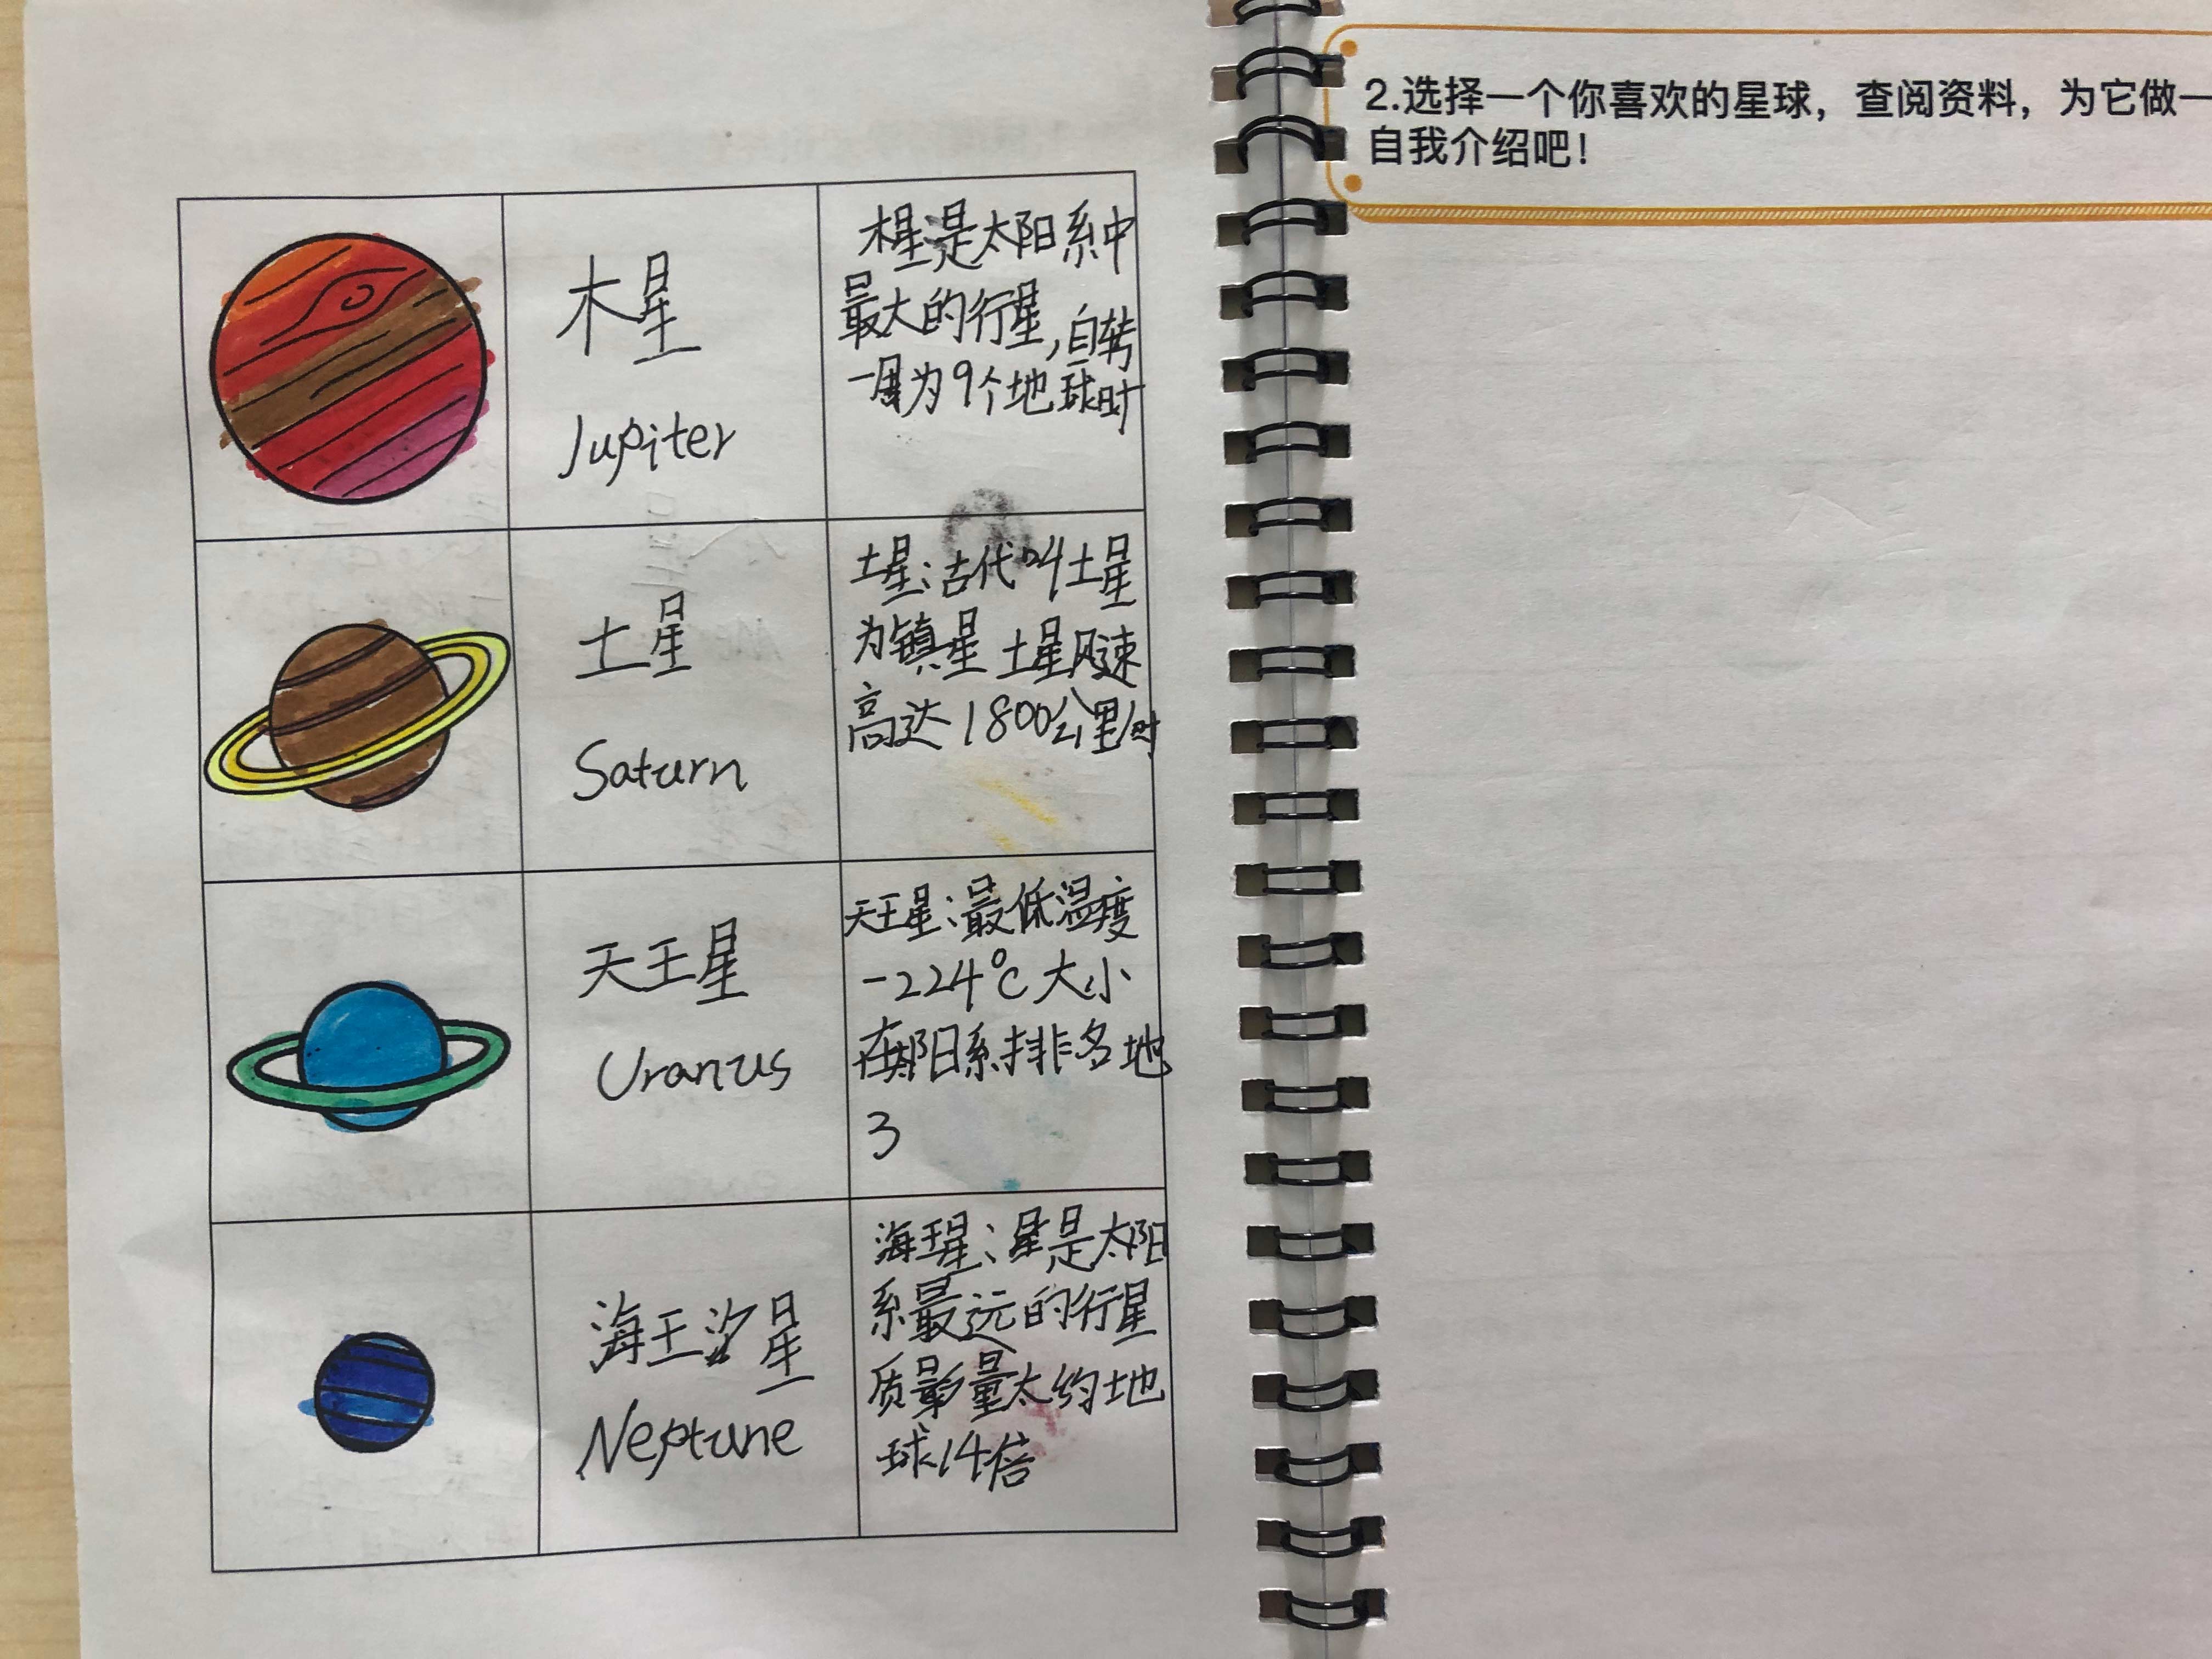 木星
Jupiter
木星:是太阳系中
最大的行星,自转
一周为9个地球时
土星
Saturn
土星:古代叫土星
为镇星 土星风速
高达1800公里/时
天王星
Uranus
天王星:最低温度
-224℃ 大小
在太阳系排名地
3
海王星
Neptune
海王星:星是太阳
系最远的行星
质量太约地
球14倍
2.选择一个你喜欢的星球，查阅资料，为它做一
自我介绍吧！